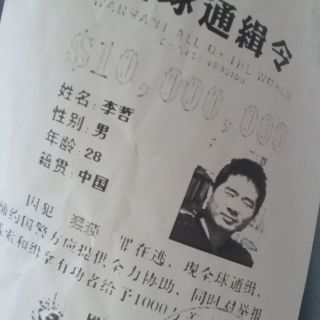 全球通緝令
WARRANT ALL OF THE WORLD
CHINESE VERSION
$10,000,000
姓名：李哲
性别：男
年龄：28
籍贯：中国
因犯 猥亵 罪在逃，现全球通缉，
国警方提供全力协助，同时对举报
有功者给予1000万